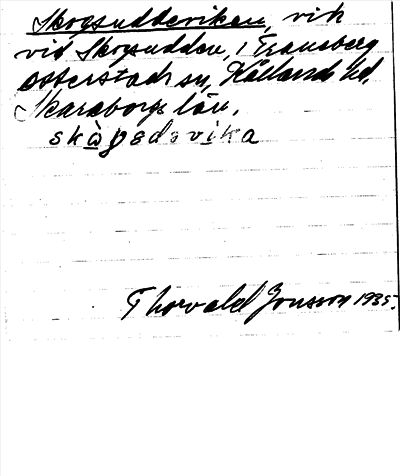 Skogsuddeviken, vik
vid Skogsudden, i Transberg
Otterstads sn, Kållands hd,
Skaraborgs län.
skògsdəvika
Thorvald Jonsson 1935.